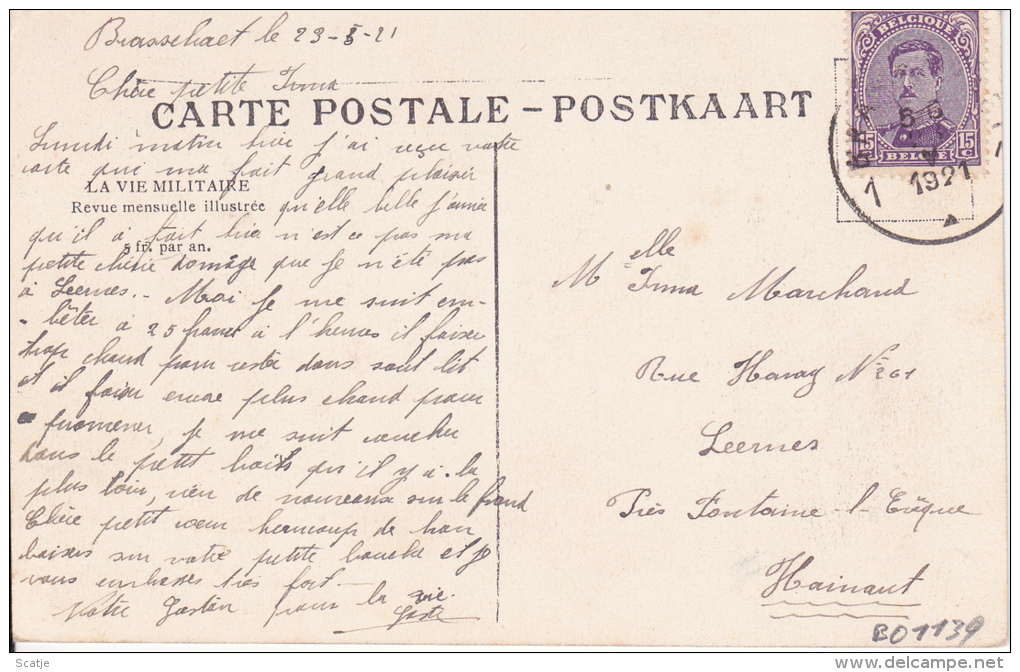 Brasschaet le 23-5-21
Chère petite Irma
CARTE POSTALE - POSTKAART
Lundi matin hier j'ai reçu votre
carte qui ma fait grand plaisir
LA VIE MILITAIRE
Revue mensuelle illustrée
qu'elle belle
qu'il à fait hier n'est ce pas ma
5 fr. par an.
petite chérie domage que je n'été pas
à Leernes.- Moi je me suit em-
bêter à 25 francs à l'heures il faiser
trop chaud pour resté dans sont lit
et il faiser encore plus chaud pour
promener, je me suit coucher
dans le petit boits qu'il y à la
plus loin, rien de nouveaux sur le front
Chère petit cœur beaucoup de bon
baises sur votre petite bouche et je
vous embrasses très fort-
Votre Gaston pour la vie.
Gaste
BELGIQUE
15 C 15 C
BELGIE
1 1921 1
Melle Irma Marchand
Rue Haray N° 201
Leernes
Près Fontaine-l-Evêque
Hainaut
BO1139
Scatje
delcampe.net